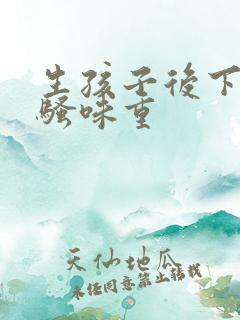 生孩子後下
騷味重
天仙地瓜
未经同意禁止转载